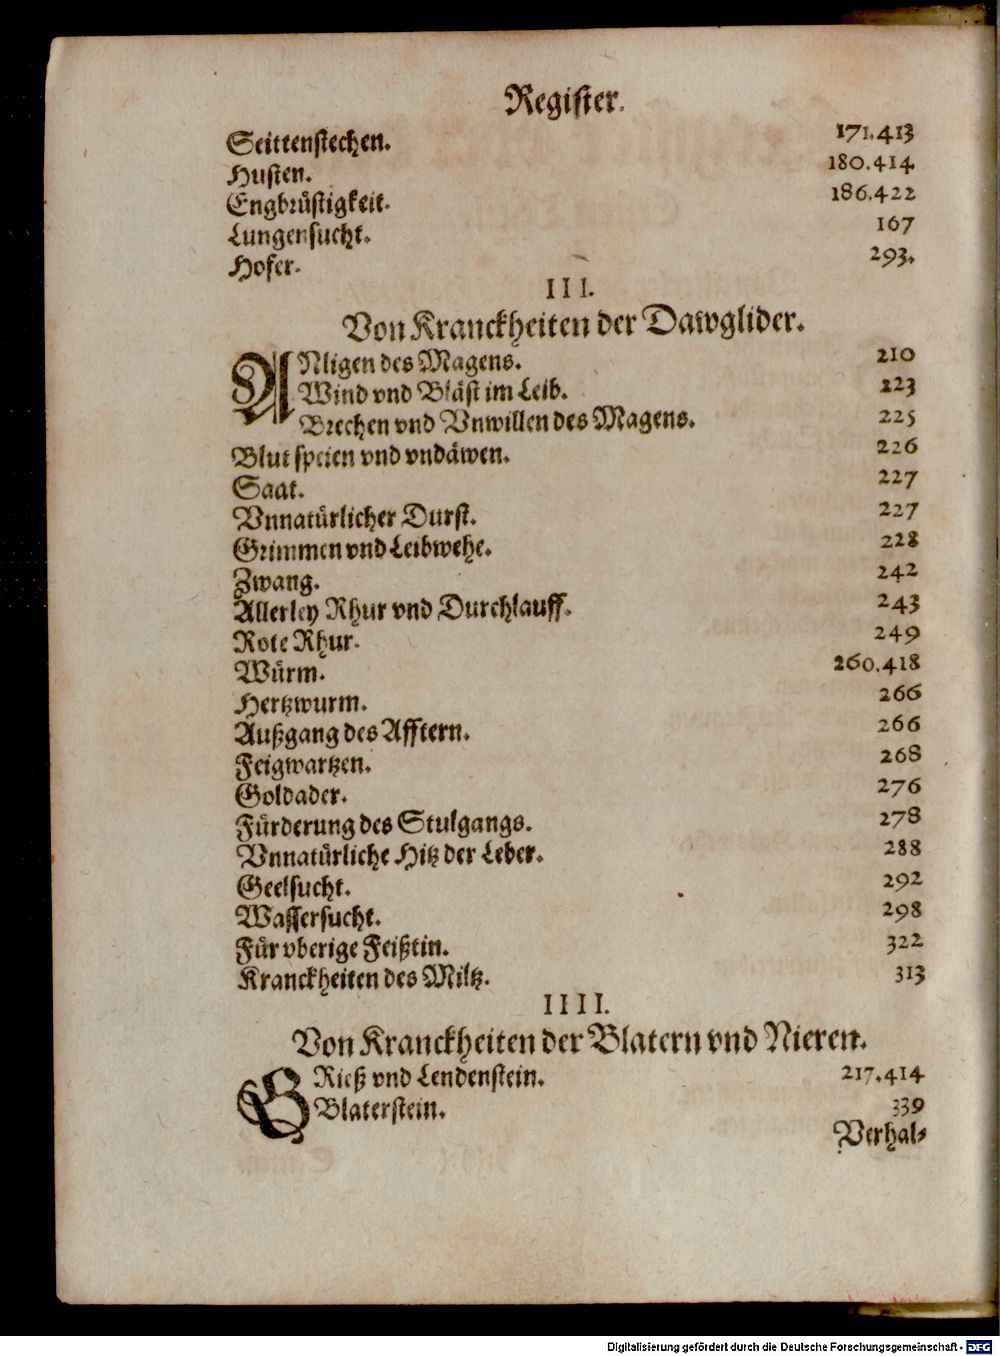 Register.
Seittenstechen. 171.413
Husten. 180.414
Engbrüstigkeit. 186.422
Lungensucht. 167
Hofer. 293.
III.
Von Kranckheiten der Dawglider.
ANligen des Magens. 210
Wind vnd Bläst im Leib. 223
Brechen vnd Vnwillen des Magens. 225
Blut speien vnd vndäwen. 226
Saat. 227
Vnnatürlicher Durst. 227
Grimmen vnd Leibwehe. 228
Zwang. 242
Allerley Rhur vnd Durchlauff. 243
Rote Rhur. 249
Würm. 260.418
Hertzwurm. 266
Außgang des Afftern. 266
Feigwartzen. 268
Goldader. 276
Fürderung des Stulgangs. 278
Vnnatürliche Hitz der Leber. 288
Geelsucht. 292
Wassersucht. 298
Für vberige Feißtin. 322
Kranckheiten des Miltz. 313
IIII.
Von Kranckheiten der Blatern vnd Nieren.
GRieß vnd Lendenstein. 217.414
Blaterstein. 339
Verhal-
Digitalisierung gefördert durch die Deutsche Forschungsgemeinschaft - DFG